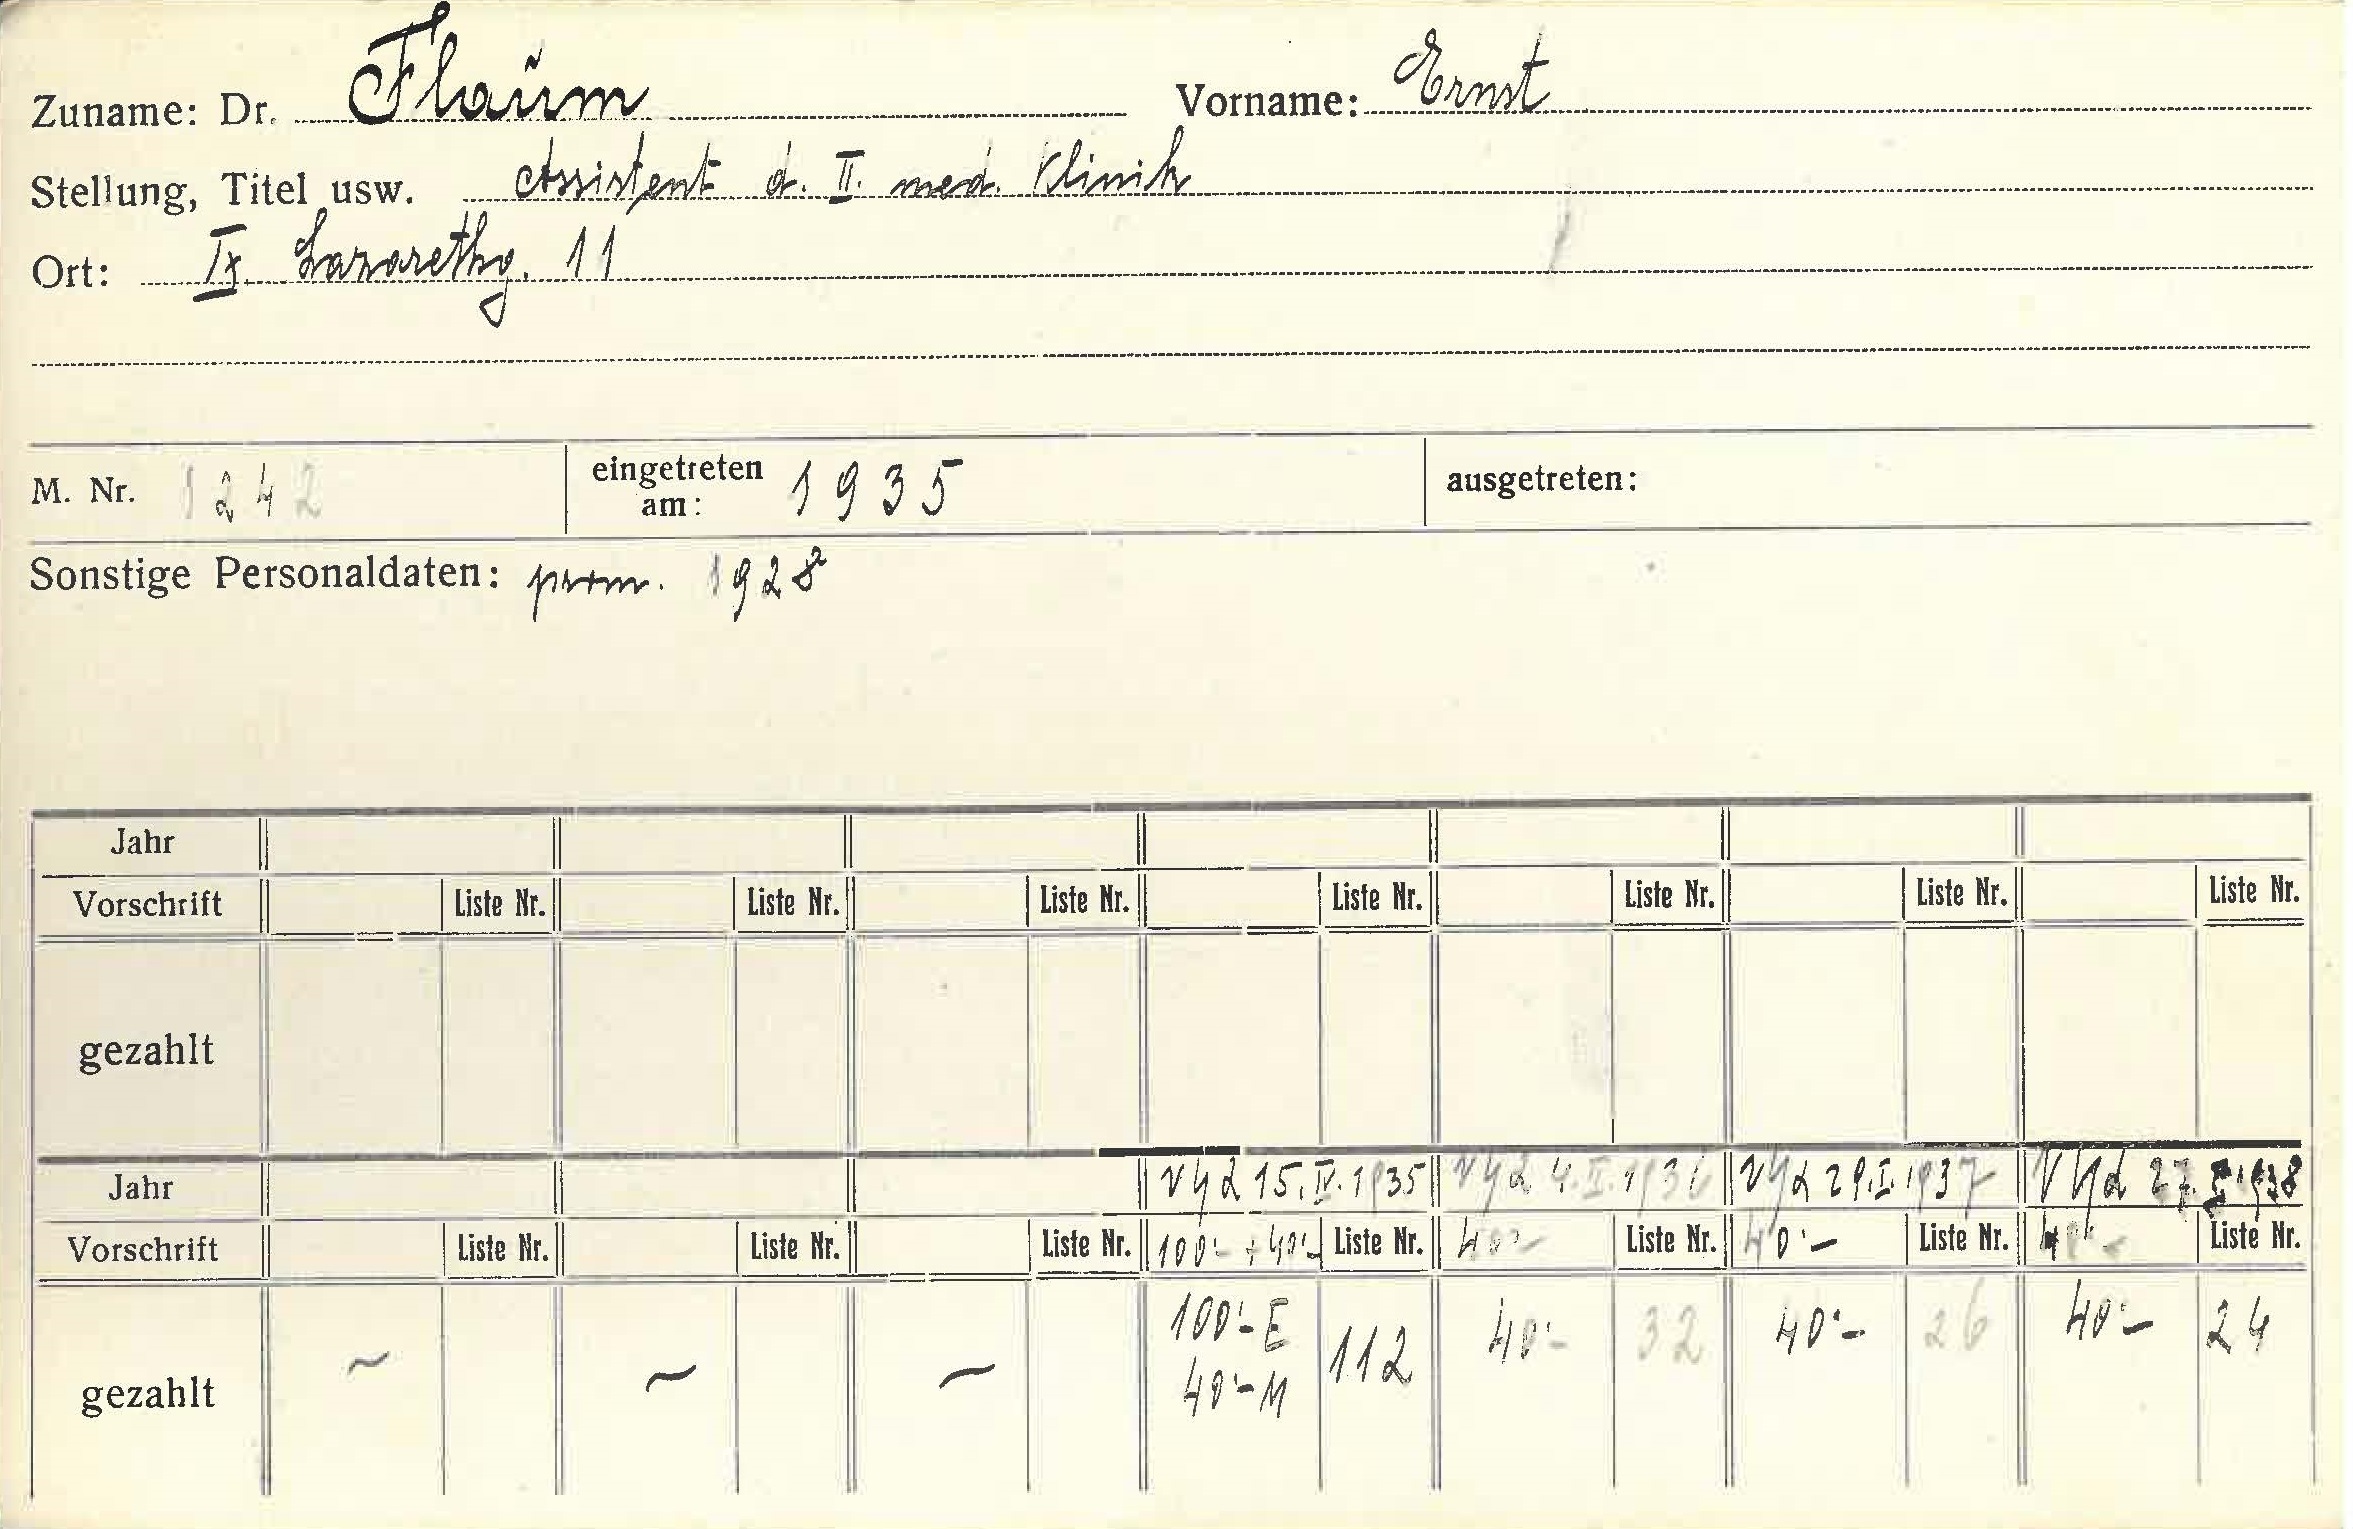 Zuname: Dr. Flaum Vorname: Ernst
Stellung, Titel usw. Assistent d. II. med. Klinik
Ort: IX. Lazarethg. 11
M. Nr. 1242 eingetreten am: 1935 ausgetreten:
Sonstige Personaldaten: prom. 1928
Jahr
Vorschrift Liste Nr. Liste Nr. Liste Nr. Liste Nr. Liste Nr. Liste Nr. Liste Nr.
gezahlt
Jahr 15. IV. 1935 4. II. 1936 29. I. 1937 27. I. 1938
Vorschrift Liste Nr. Liste Nr. Liste Nr. 100·- + 40·- Liste Nr. 40·- Liste Nr. 40·- Liste Nr. 40·- Liste Nr.
gezahlt ~ ~ ~ 100·- E 112 40·- 32 40·- 26 40·- 24
40·- M